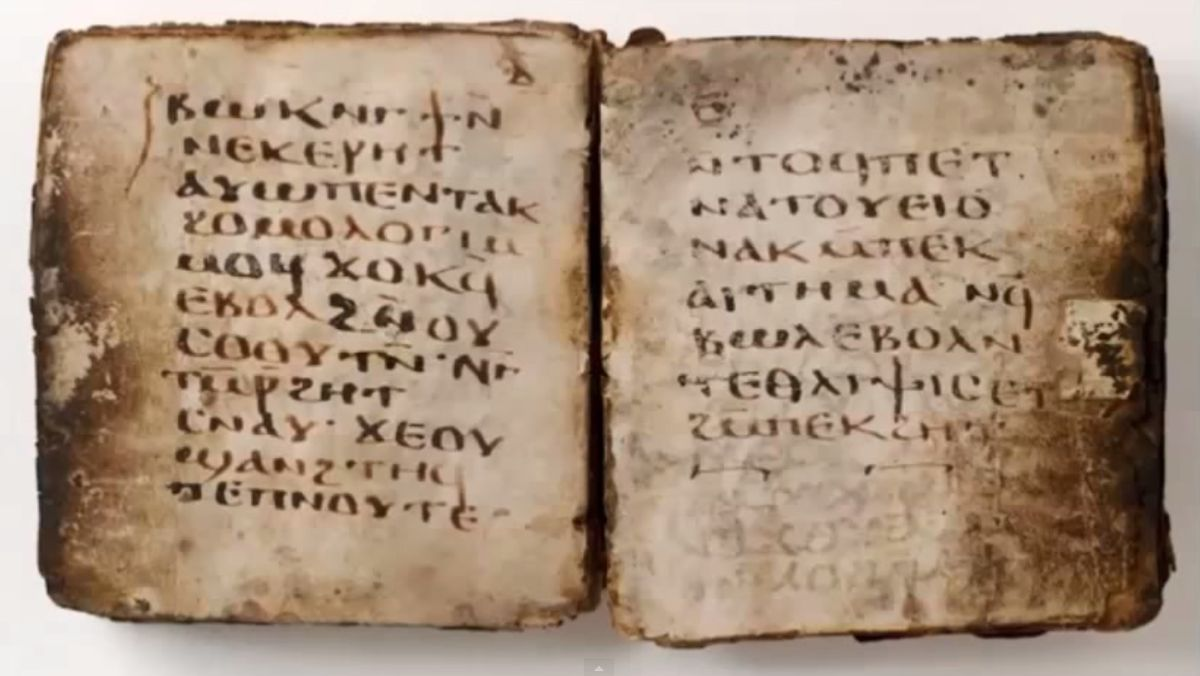 ⲃⲱⲕ ⲛⲅϯ ⲛ̄
ⲛⲉⲕⲉⲣⲏⲧ
ⲁⲩⲱ ⲡⲉⲛⲧⲁⲕ
ϩⲟⲙⲟⲗⲟⲅⲓⲁ
ⲙⲟϥ ϫⲟⲕϥ̄
ⲉⲃⲟⲗ ϩⲛ̄ⲟⲩ
ⲥⲟⲟⲩⲧⲛ̄· ⲛⲅ
ⲧⲙ̄ⲣ̄ϩⲏⲧ
ⲥⲛⲁⲩ· ϫⲉⲟⲩ
ϣⲁⲛϩⲧⲏϥ
ⲡⲉⲡⲛⲟⲩⲧⲉ·
ⲛⲧⲟϥ ⲡⲉⲧ
ⲛⲁⲧⲟⲩⲉⲓⲟ
ⲛⲁⲕ ⲙ̄ⲡⲉⲕ
ⲁⲓⲧⲏⲙⲁ ⲛϥ̄
ⲃⲱⲗ ⲉⲃⲟⲗ ⲛ
ⲧⲉⲑⲗⲓⲯⲓⲥ ⲉⲧ
ϩⲙ̄ⲡⲉⲕϩⲏⲧ